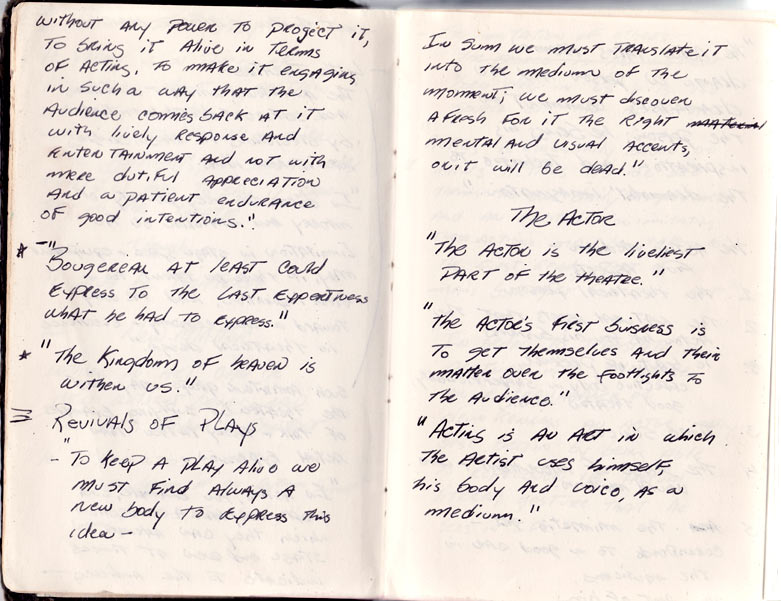 without any power to project it,
to bring it alive in terms
of acting, to make it engaging
in such a way that the
audience comes back at it
with lively response and
entertainment and not with
mere dutiful appreciation
and a patient endurance
of good intentions."
* - "Bougereau at least could
express to the last expertness
what he had to express."
* "The Kingdom of heaven is
within us."
Revivals of Plays
- "To keep a play alive we
must find always a
new body to express this
idea -
In sum we must translate it
into the medium of the
moment; we must discover
afresh for it the right material
mental and usual accents,
or it will be dead."
The Actor
"The actor is the liveliest
part of the theatre."
"The actor's first business is
to get themselves and their
matter over the footlights to
the audience."
"Acting is an art in which
the artist uses himself,
his body and voice, as a
medium."